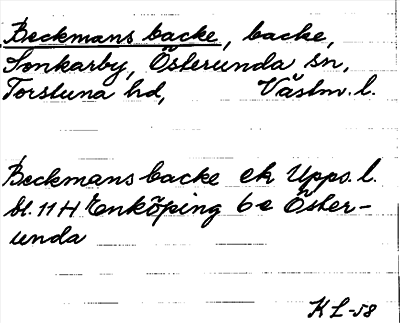 Beckmans backe, backe,
Sonkarby, Österunda sn,
Torstuna hd, Västm. l.
Beckmans backe ek Upps. l.
bl. 11 H Enköping 6 e Öster-
unda
KL-58